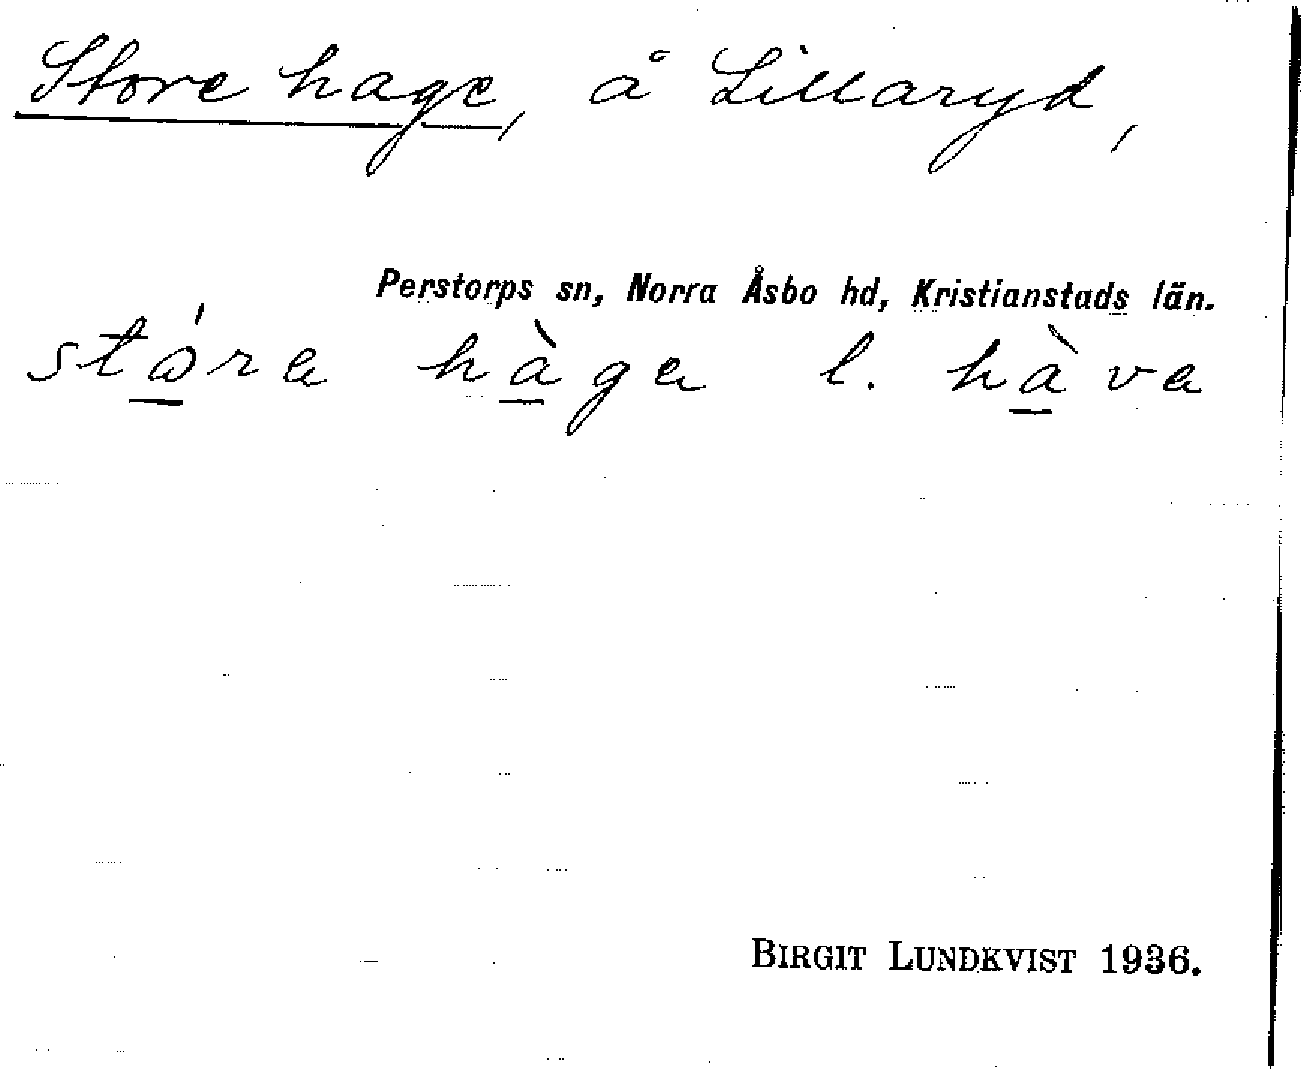 Store hage, å Lillaryd,
Perstorps sn, Norra Åsbo hd, Kristianstads län.
stó̲ra hà̲ga l. hà̲va
BIRGIT LUNDKVIST 1936.